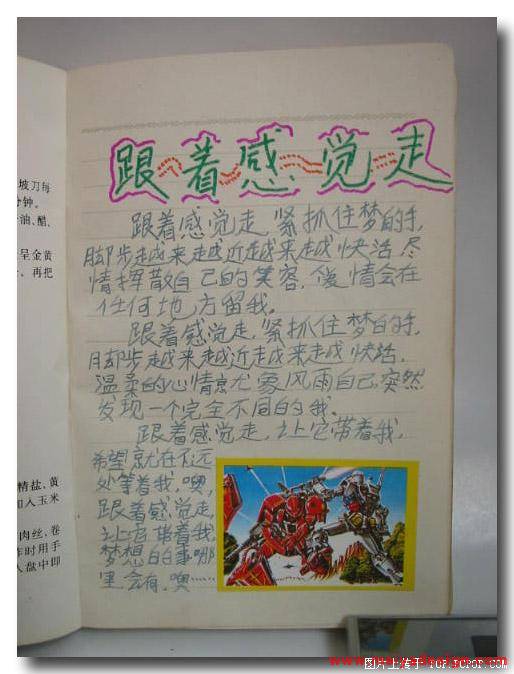 坡刀每
分钟。
油、醋、
呈金黄
、再把
精盐、黄
加入玉米
肉丝、卷
作时用手
入盘中即
跟着感觉走
跟着感觉走,紧抓住梦的手,
脚步越来越近越来越快活,尽
情挥散自己的笑容,傻情会在
任何地方留我。
跟着感觉走,紧抓住梦的手,
脚步越来越近越来越快活,
温柔的心情就象风雨自己,突然
发现一个完全不同的我。
跟着感觉走,让它带着我,
希望就在不远
处等着我,噢,
跟着感觉走,
让它带着我,
梦想的的事哪
里会有,噢
图片上传于 TopIt.cror.com